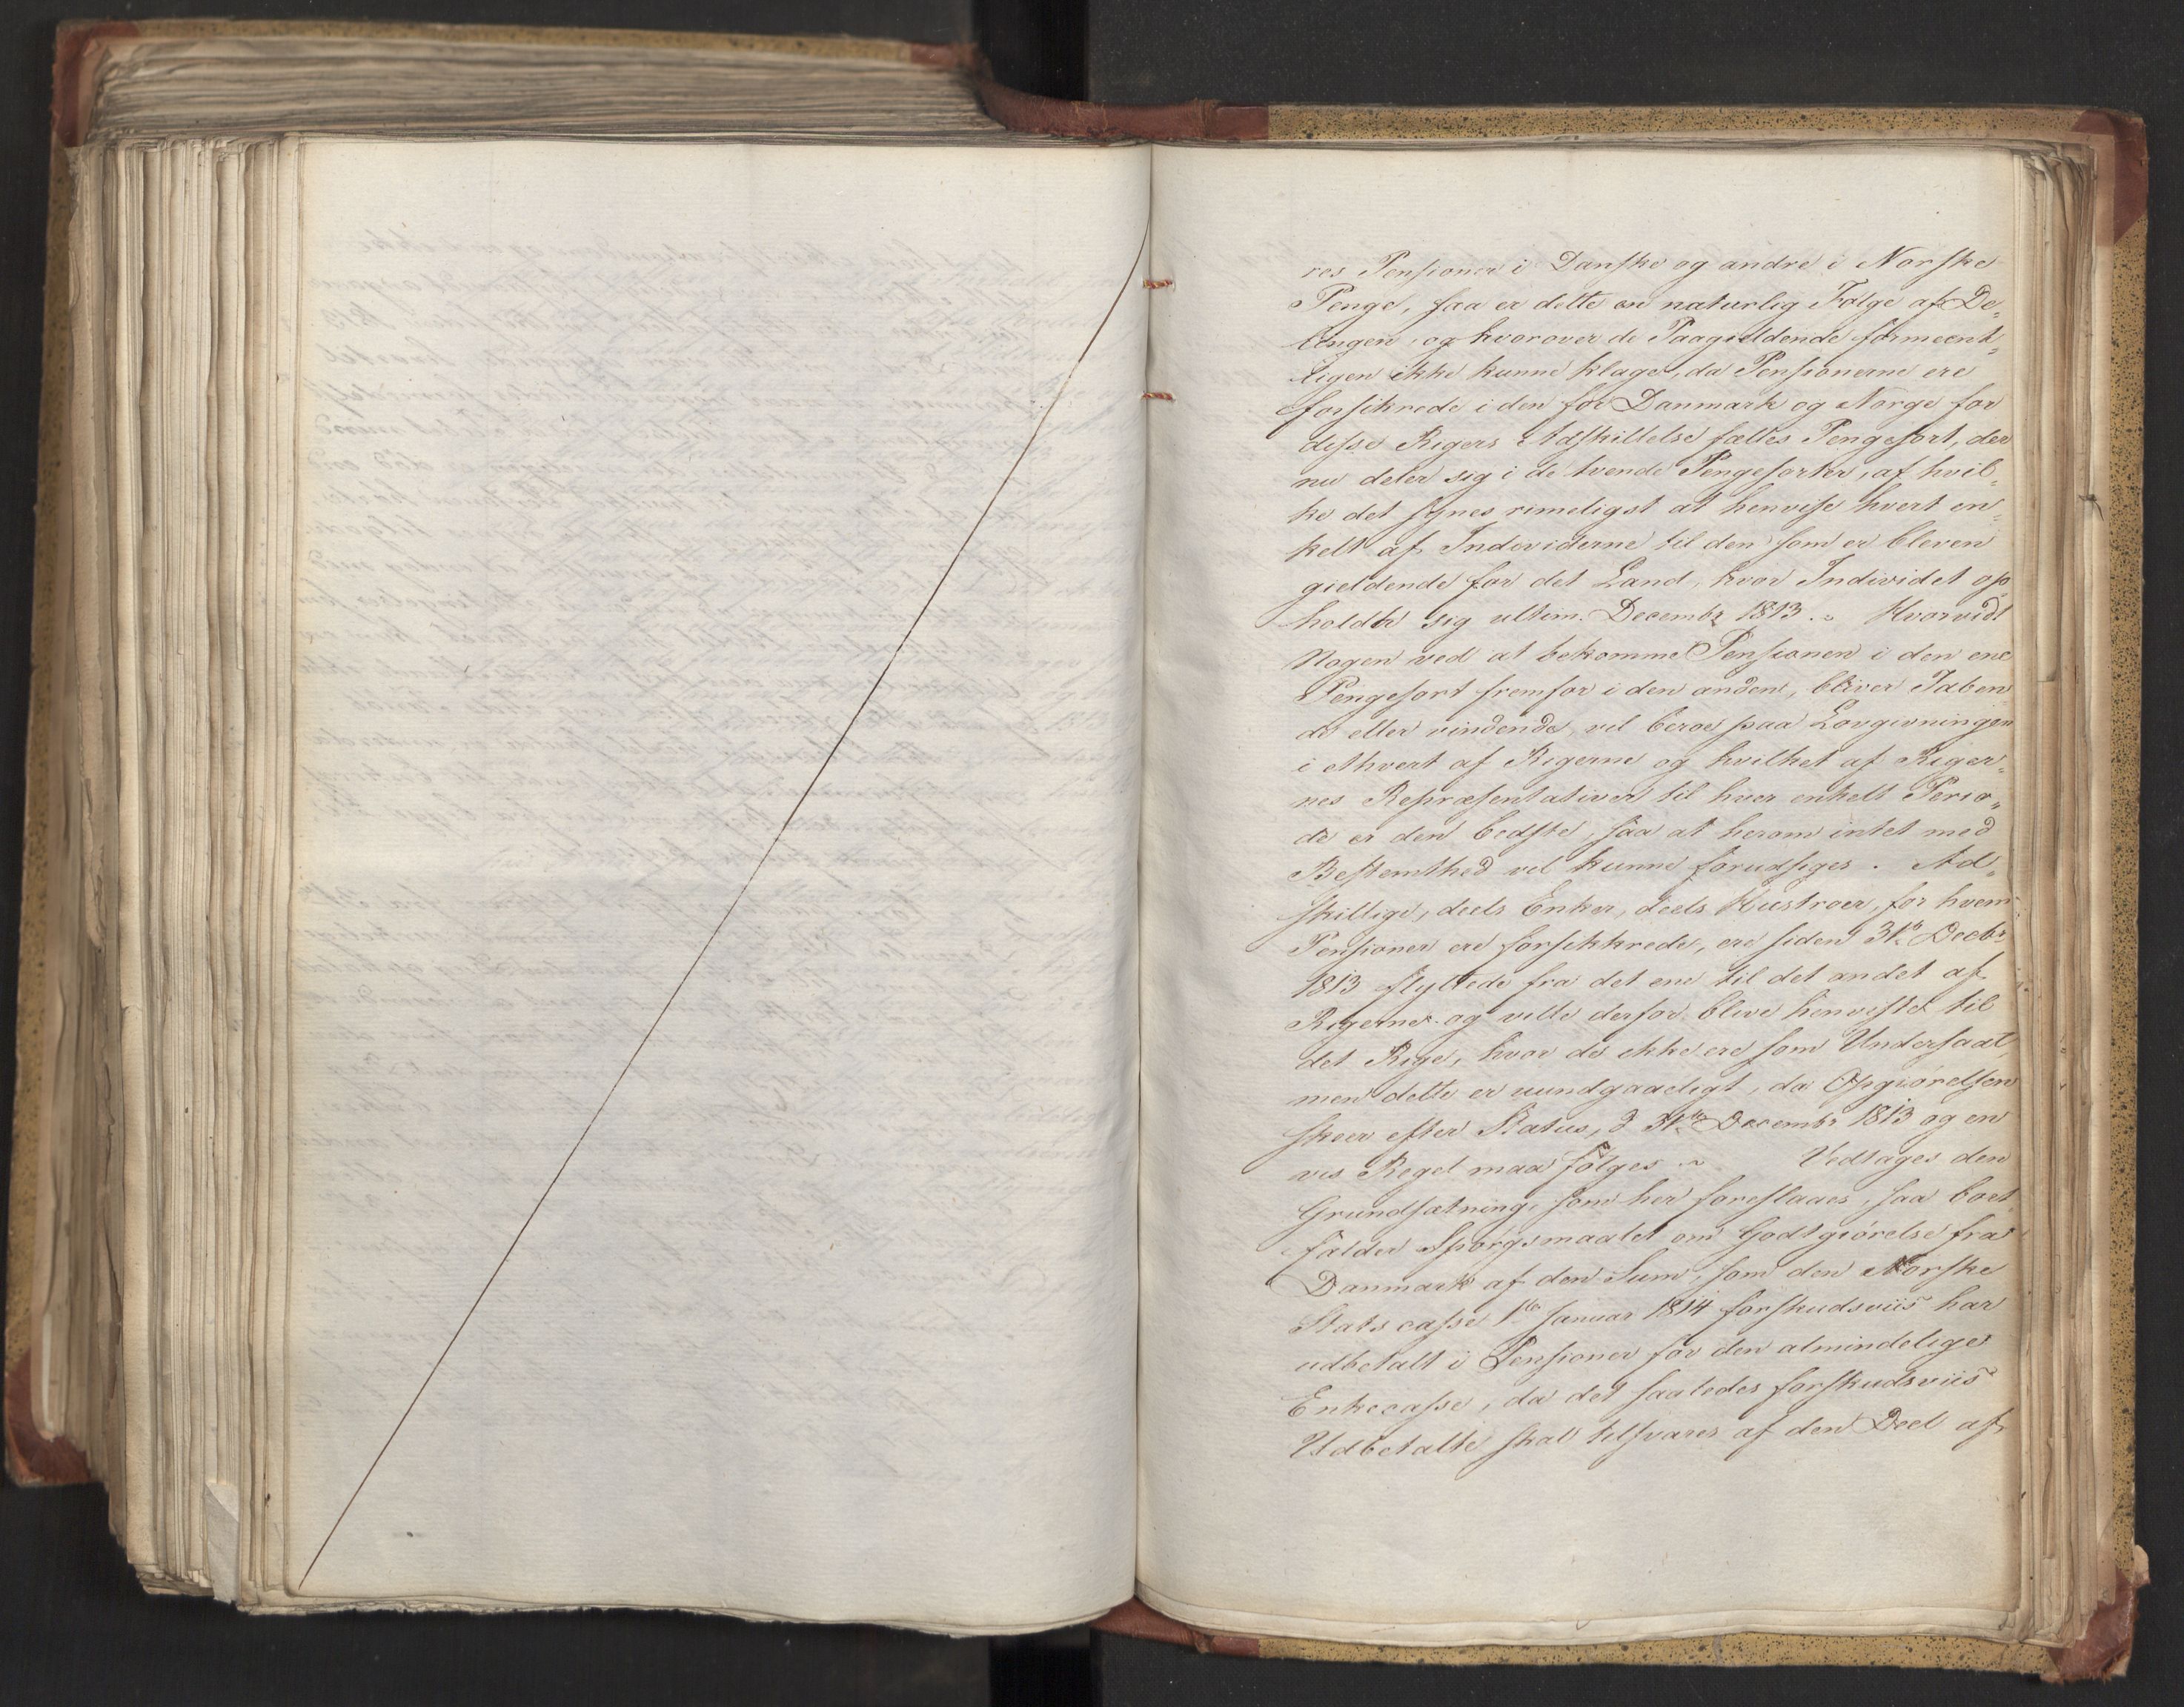 res Pensioner i Danske og andre i Norske
Penge, saa er dette en naturlig Følge af De-
lingen, og hvorover de Paagieldende formeent-
ligen ikke kunne klage, da Pensionerne ere
forsikrede i den for Danmark og Norge før
disse Rigers Adskillelse fælles Pengesort, der
nu deler sig i de tvende Pengesorter, af hvil-
ke det synes rimeligst at henvise hvert en-
kelt af Individerne til den som er bleven
gieldende for det Land, hvor Individet op-
holdte sig ultim. Decembr 1813. ~ Hvorvidt
Nogen ved at bekomme Pensionen i den ene
Pengesort fremfor i den anden, bliver Taben-
de eller vindende, vil beroe paa Lovgivningen
i ethvert af Rigerne og hvilket af Riger-
nes Repræsentativer til hver enkelt Perio-
de er den bedste, saa at herom intet med
Bestemthed vel kunne forudsiges. Ad-
skillige, deels Enker, deels Hustroer, for hvem
Pensioner ere forsikkrede, ere siden 31te Decbr
1813 flyttede fra det ene til det andet af
Rigerne og ville derfor blive henviste til
det Rige, hvor de ikke ere som Undersaat,
men dette er uundgaaeligt, da Opgiørelsen
skeer efter Status, d 31te Decembr 1813 og en
vis Regel maa følges ~ Vedtages den
Grundsætning, som her foreslaaes, saa bort-
falder Spørgsmaalet om Godtgiørelse fra
Danmark af den Sum, som den Norske
Statscasse 1te Januar 1814 forskudsviis har
udbetalt i Pensioner for den almindelige
Enkecasse, da det saaledes forskudsviis
Udbetalte skal tilsvares af den Deel af